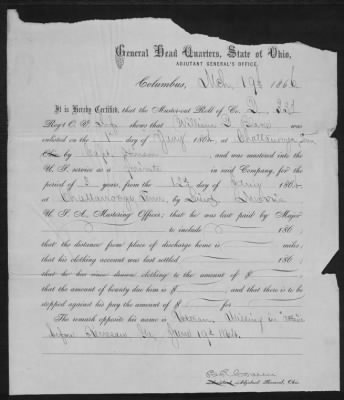 General Head Quarters, State of Ohio,
ADJUTANT GENERAL'S OFFICE.
Columbus, Mch 19th 1866
It is Hereby Certified, that the Muster-out Roll of Co. D 33d
Reg't O. V. Inf shows that William
enlisted on the 1st day of 1864 at Chattanooga Tenn
by Capt. and was mustered into the
U. S. service as a private in said Company, for the
period of 3 years, from the 12th day of 1864
at Chattanooga Tenn, by Lieut
U. S. A. Mustering Officer; that he was last paid by Major
to include 186 ;
that the distance from place of discharge home is miles;
that his clothing account was last settled 186 ;
that he has since drawn clothing to the amount of $ ;
that the amount of bounty due him is $ , and that there is to be
stopped against his pay the amount of $ for
The remark opposite his name is Veteran Missing in action
before Kenesaw Ga, June 19th 1864.
Adjutant General, Ohio